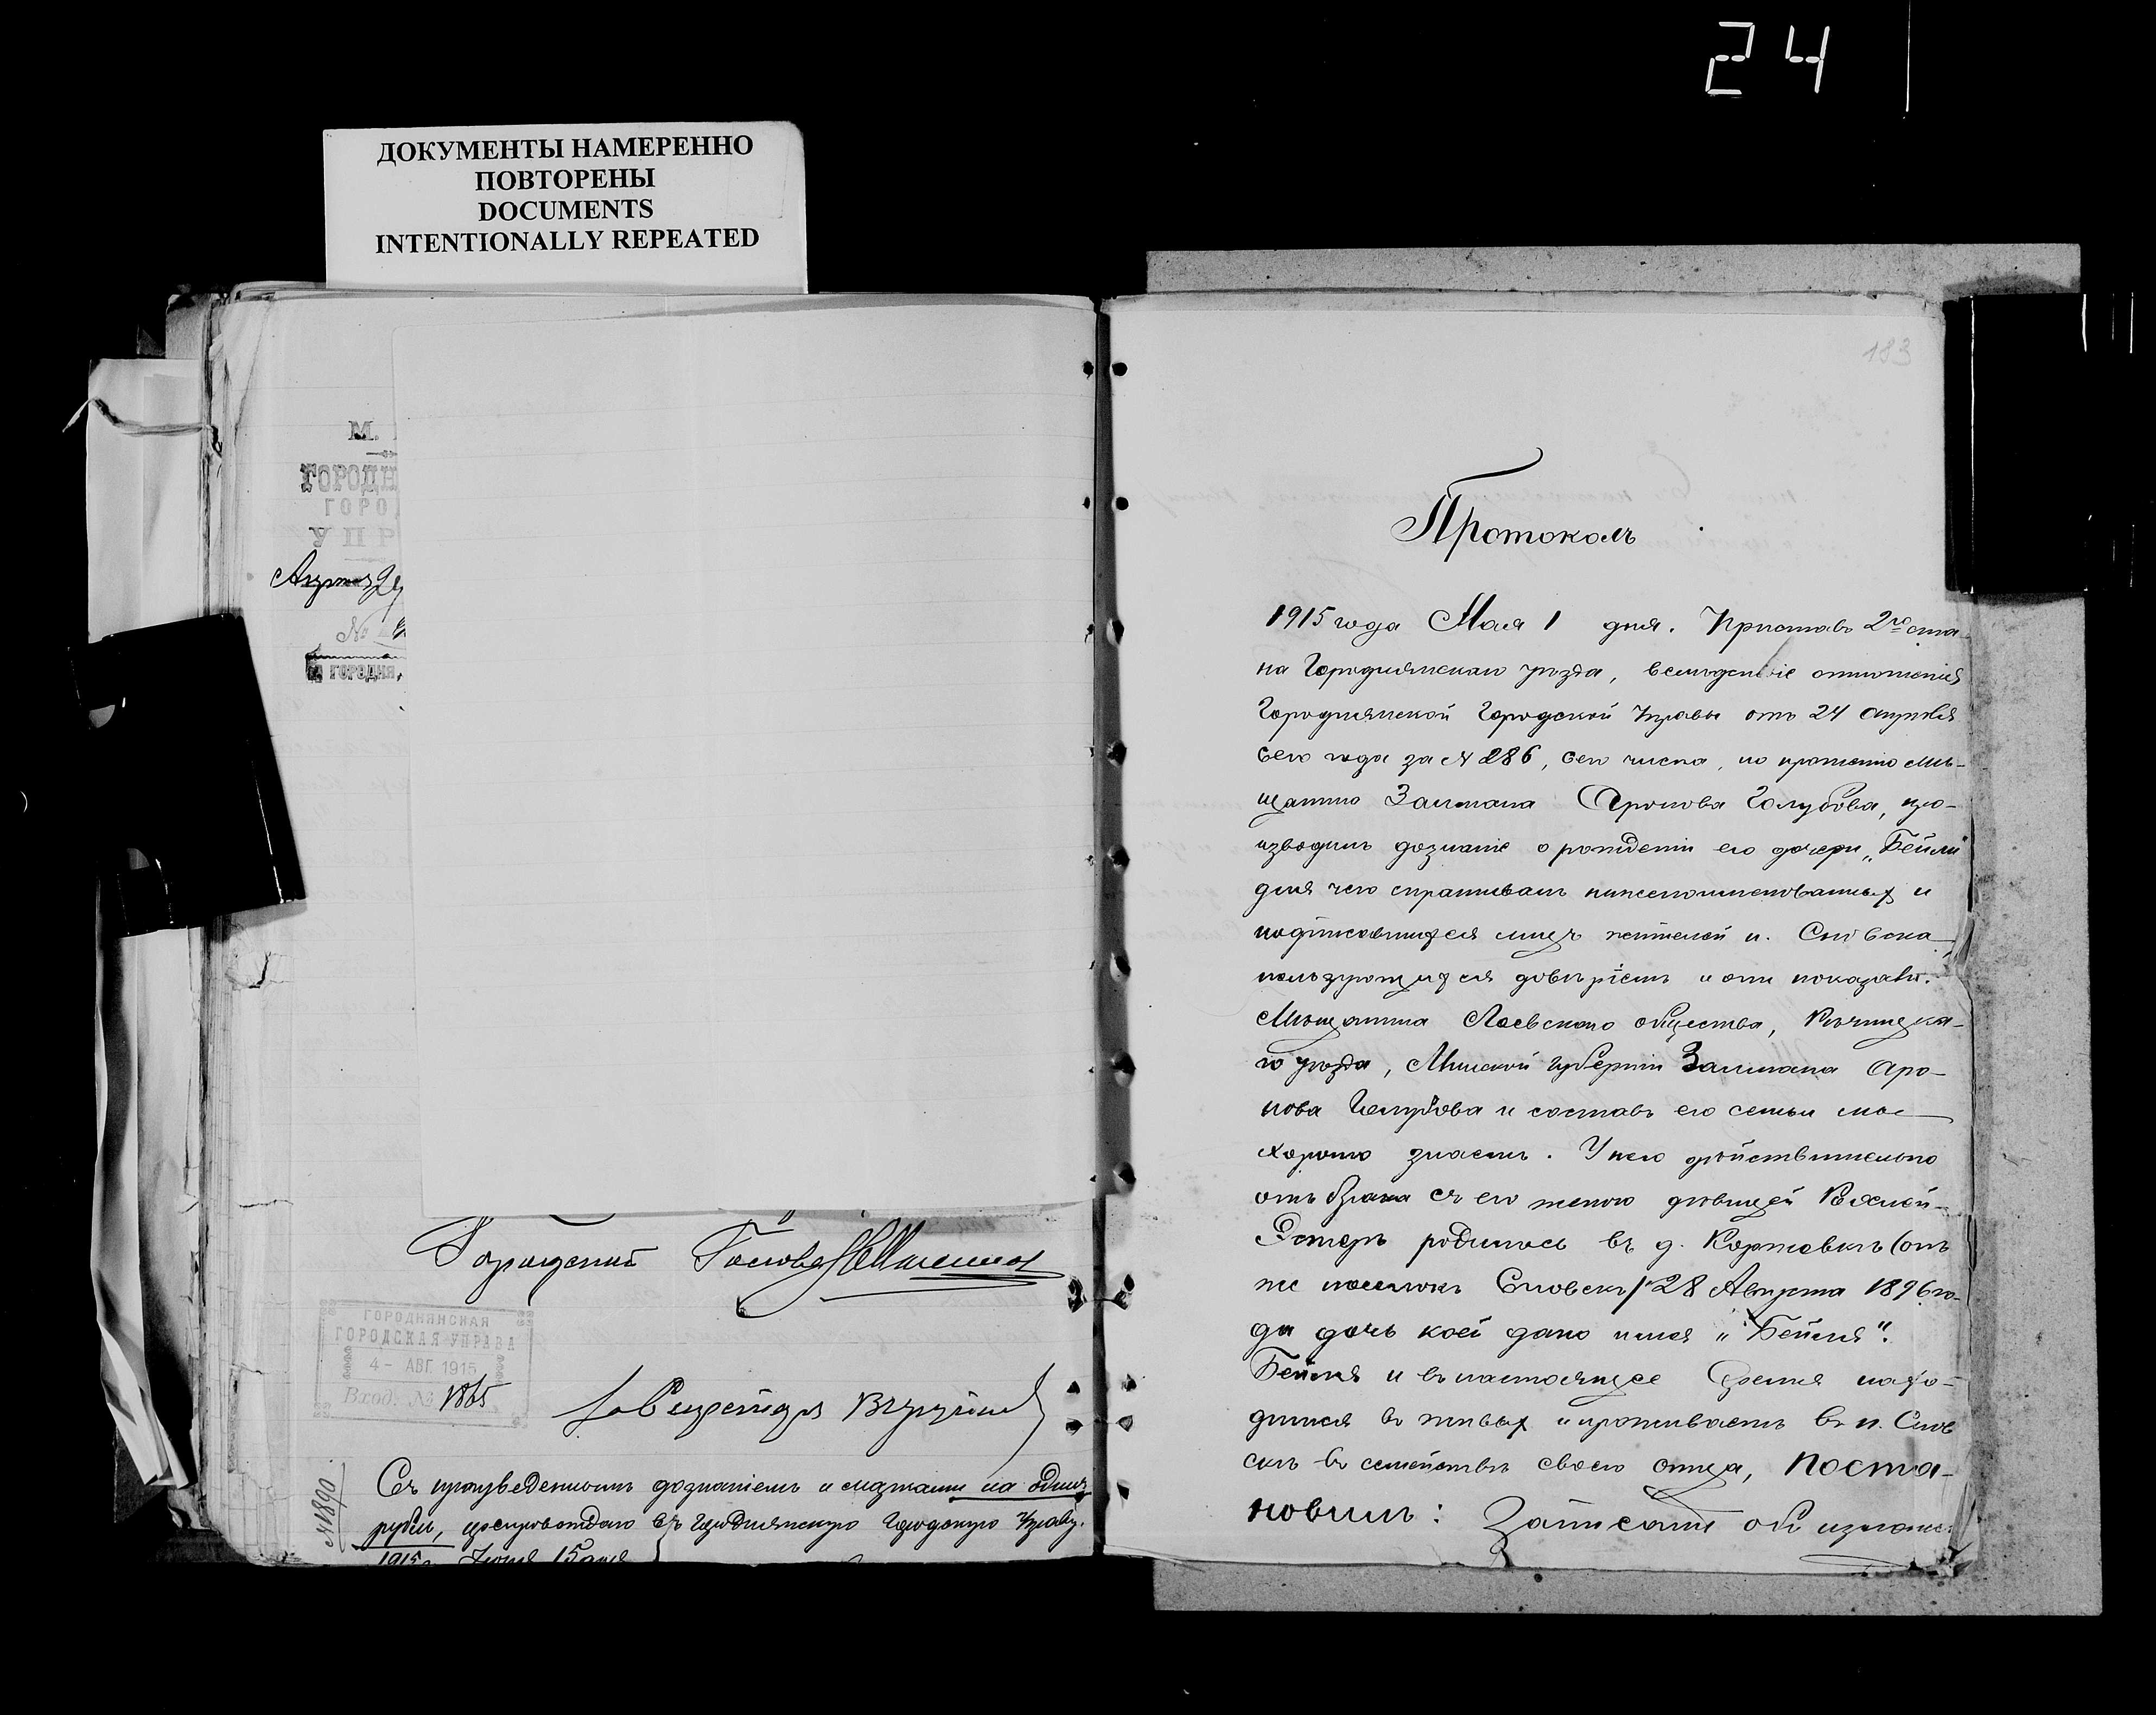 24
ДОКУМЕНТЫ НАМЕРЕННО
ПОВТОРЕНЫ
DOCUMENTS
INTENTIONALLY REPEATED
М.
ГОРОДН
ГОРО
УПР
№
ГОРОДНЯ,
Городской Голова
ГОРОДНЯНСКАЯ
ГОРОДСКАЯ УПРАВА
4 - АВГ 1915
Вход. № 1865
Секретаря
№1890
Съ произведеннымъ дознаніемъ и марками на одинъ
рубль, препровождаю въ Городнянскую Городскую Управу.
1915г. Іюня 15 дня
183
Протоколъ
1915 года Мая 1 дня. Приставъ 2го ста-
на Городнянскаго уѣзда, вслѣдствіе отношенія
Городнянской Городской Управы отъ 24 апрѣля
сего года за № 286, сего числа, по прошенію мѣ-
щанина Залмана Аронова Голубова, про-
изводилъ дознаніе о рожденіи его дочери „Бейли"
для чего спрашивалъ нижепоименованныхъ и
подписавшихся лицъ жителей п. Сновска,
пользующихся довѣріемъ и они показали:
Мѣщанина Лоевскаго общества, Рѣчицка-
го уѣзда, Минской губерніи Залмана Аро-
нова Голубова и составъ его семьи мы
хорошо знаемъ. У него дѣйствительно
отъ брака съ его женою дѣвицей Рохлей-
Эстеръ родилась въ д. Коржовкѣ (онъ
же поселокъ Сновскъ) 28 Августа 1896 го-
да дочь коей дано имя „Бейля".
Бейля и въ настоящее время нахо-
дится въ живыхъ и проживаетъ въ п. Снов
скѣ въ семействѣ своего отца, поста-
новилъ: Записать объ изложе-